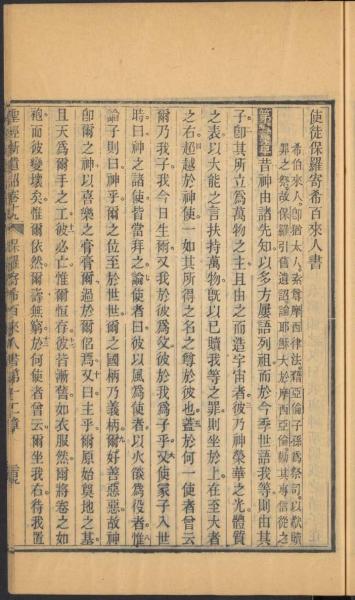 使徒保羅寄希百來人書
希伯來人卽猶太人素尊摩西律法藉亞倫子孫爲祭司以獻贖
罪之祭故保羅引舊遺詔論耶穌大於摩西亞倫勸其專信從之
第一章昔神由諸先知以多方屢語列祖而於今季世語我等則由其
子卽其所立爲萬物之主且由之而造宇宙者彼乃神榮華之光體質
之表以大能之言扶持萬物旣以已贖我等之罪則坐於上在至大者
之右超越於神使一如其所得之名之尊於彼也蓋於何一使者曾云
爾乃我子我今日生爾又我於彼爲父彼於我爲子乎又使冢子入世
時曰神之諸使皆當拜之論使者曰彼以風爲使者以火燄爲役者惟
論子則曰神乎爾之位至於世世爾之國柄乃義柄爾好善惡惡故神
卽爾之神以喜樂之膏膏爾過於爾侶焉又曰主乎爾原始奠地之基
且天爲爾手之工彼必亡惟爾恒存彼皆漸舊如衣服然爾將卷之如
袍而彼變壞矣惟爾依然爾壽無窮於何使者曾云爾坐我右待我置
聖經新遺詔卷十九 保羅寄希百來人書第一二章